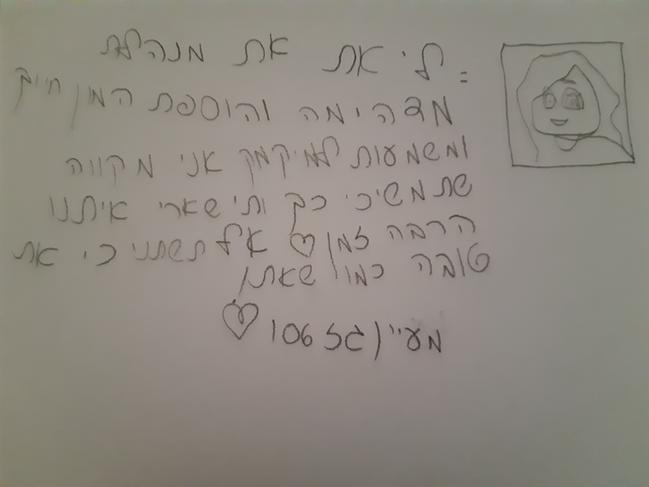 לי את את מנהלת
מדהימה והוספת המון חיוך
ומשמעות למיקמק אני מקווה
שתמשיכי כך ותישארי איתנו
הרבה זמן ♡ אל תשתני כי את
טובה כמו שאת
מעיין גל 106 ♡